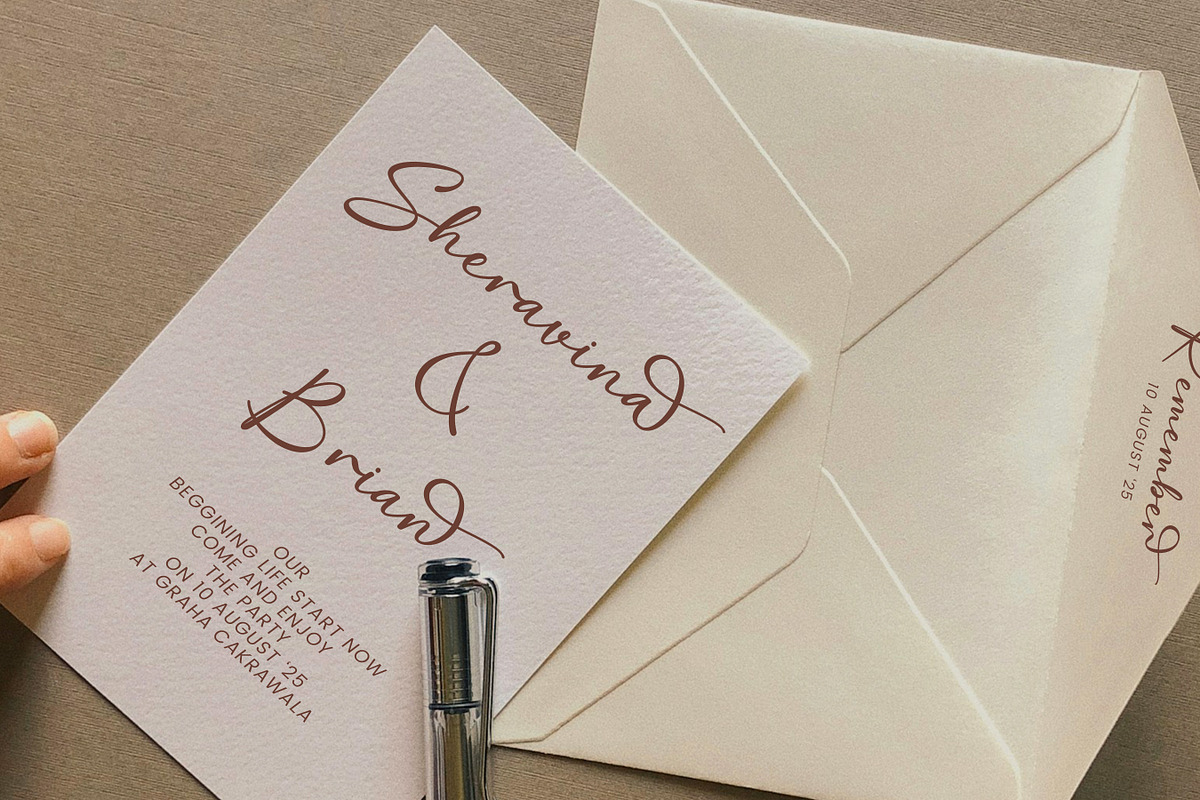 Sheravina
&
Brian
OUR
BEGGINING LIFE START NOW
COME AND ENJOY
THE PARTY
ON 10 AUGUST '25
AT GRAHA CAKRAWALA
Remember
10 AUGUST '25